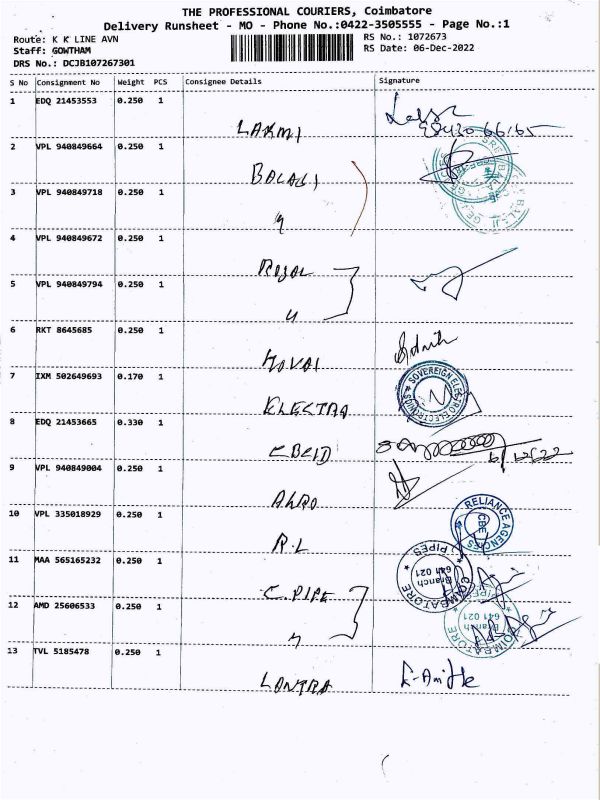 THE PROFESSIONAL COURIERS, Coimbatore
Delivery Runsheet - MO - Phone No.:0422-3505555 - Page No.:1
Route: K K LINE AVN
Staff: GOWTHAM
DRS No.: DCJB107267301
RS No.: 1072673
RS Date: 06-Dec-2022
S No Consignment No Weight PCS Consignee Details Signature
1 EDQ 21453553 0.250 1
LAXMI 98430 66165
2 VPL 940849664 0.250 1
BALAGI
3 VPL 940849718 0.250 1
4 VPL 940849672 0.250 1
ROYAL
5 VPL 940849794 0.250 1
6 RKT 8645685 0.250 1
KOVAI
7 IXM 502649693 0.170 1
ELECTRA
SOVEREIGN ELECTRO ELECTRONICS
8 EDQ 21453665 0.330 1
6/12/22
9 VPL 940849004 0.250 1
AGRO
10 VPL 335018929 0.250 1
R.L
RELIANCE AGENCIES
CBE
11 MAA 565165232 0.250 1
C. PIPE
PIPES
Branch
641 021
COIMBATORE
12 AMD 25606533 0.250 1
PIPES
Branch
641 021
COIMBATORE
13 TVL 5185478 0.250 1